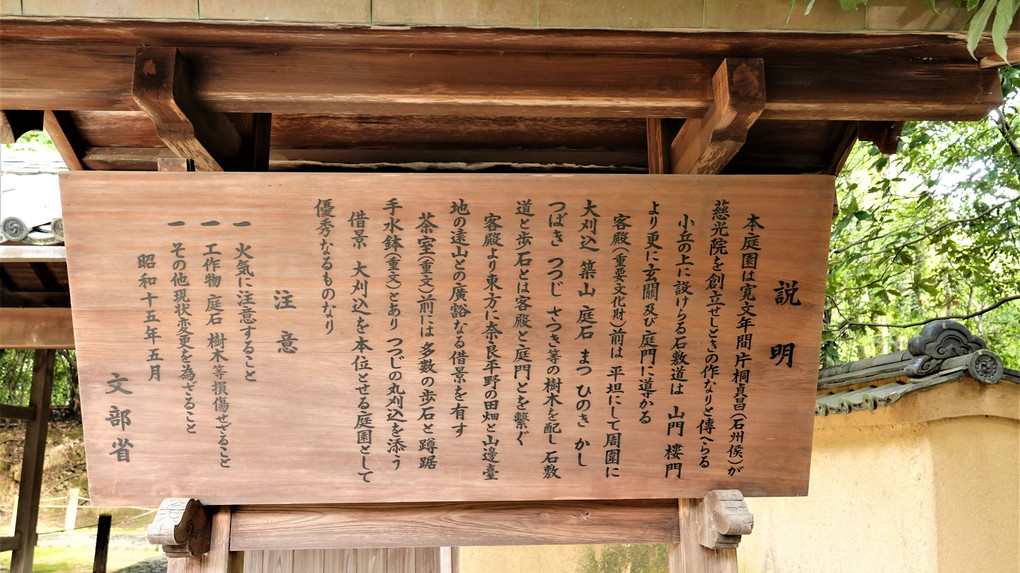 説明
本庭園は寛文年間 片桐貞昌(石州侯)が
慈光院を創立せしときの作なりと傳へらる
小丘の上に設けらる石敷道は 山門 樓門
より更に玄關 及び庭門に導かる
客殿(重要文化財)前は 平坦にして周圍に
大刈込 築山 庭石 まつ ひのき かし
つばき つつじ さつき等の樹木を配し 石敷
道と歩石とは客殿と庭門とを繫ぐ
客殿より東方に奈良平野の田畑と山邊臺
地の遠山との廣谿なる借景を有す
茶室(重文)前には 多数の歩石と蹲踞
手水鉢(重文)とあり つつじの丸刈込を添う
借景 大刈込を本位とせる庭園として
優秀なるものなり
注意
一 火気に注意すること
一 工作物 庭石 樹木等損傷せざること
一 その他現状変更を為ざること
昭和十五年五月
文部省